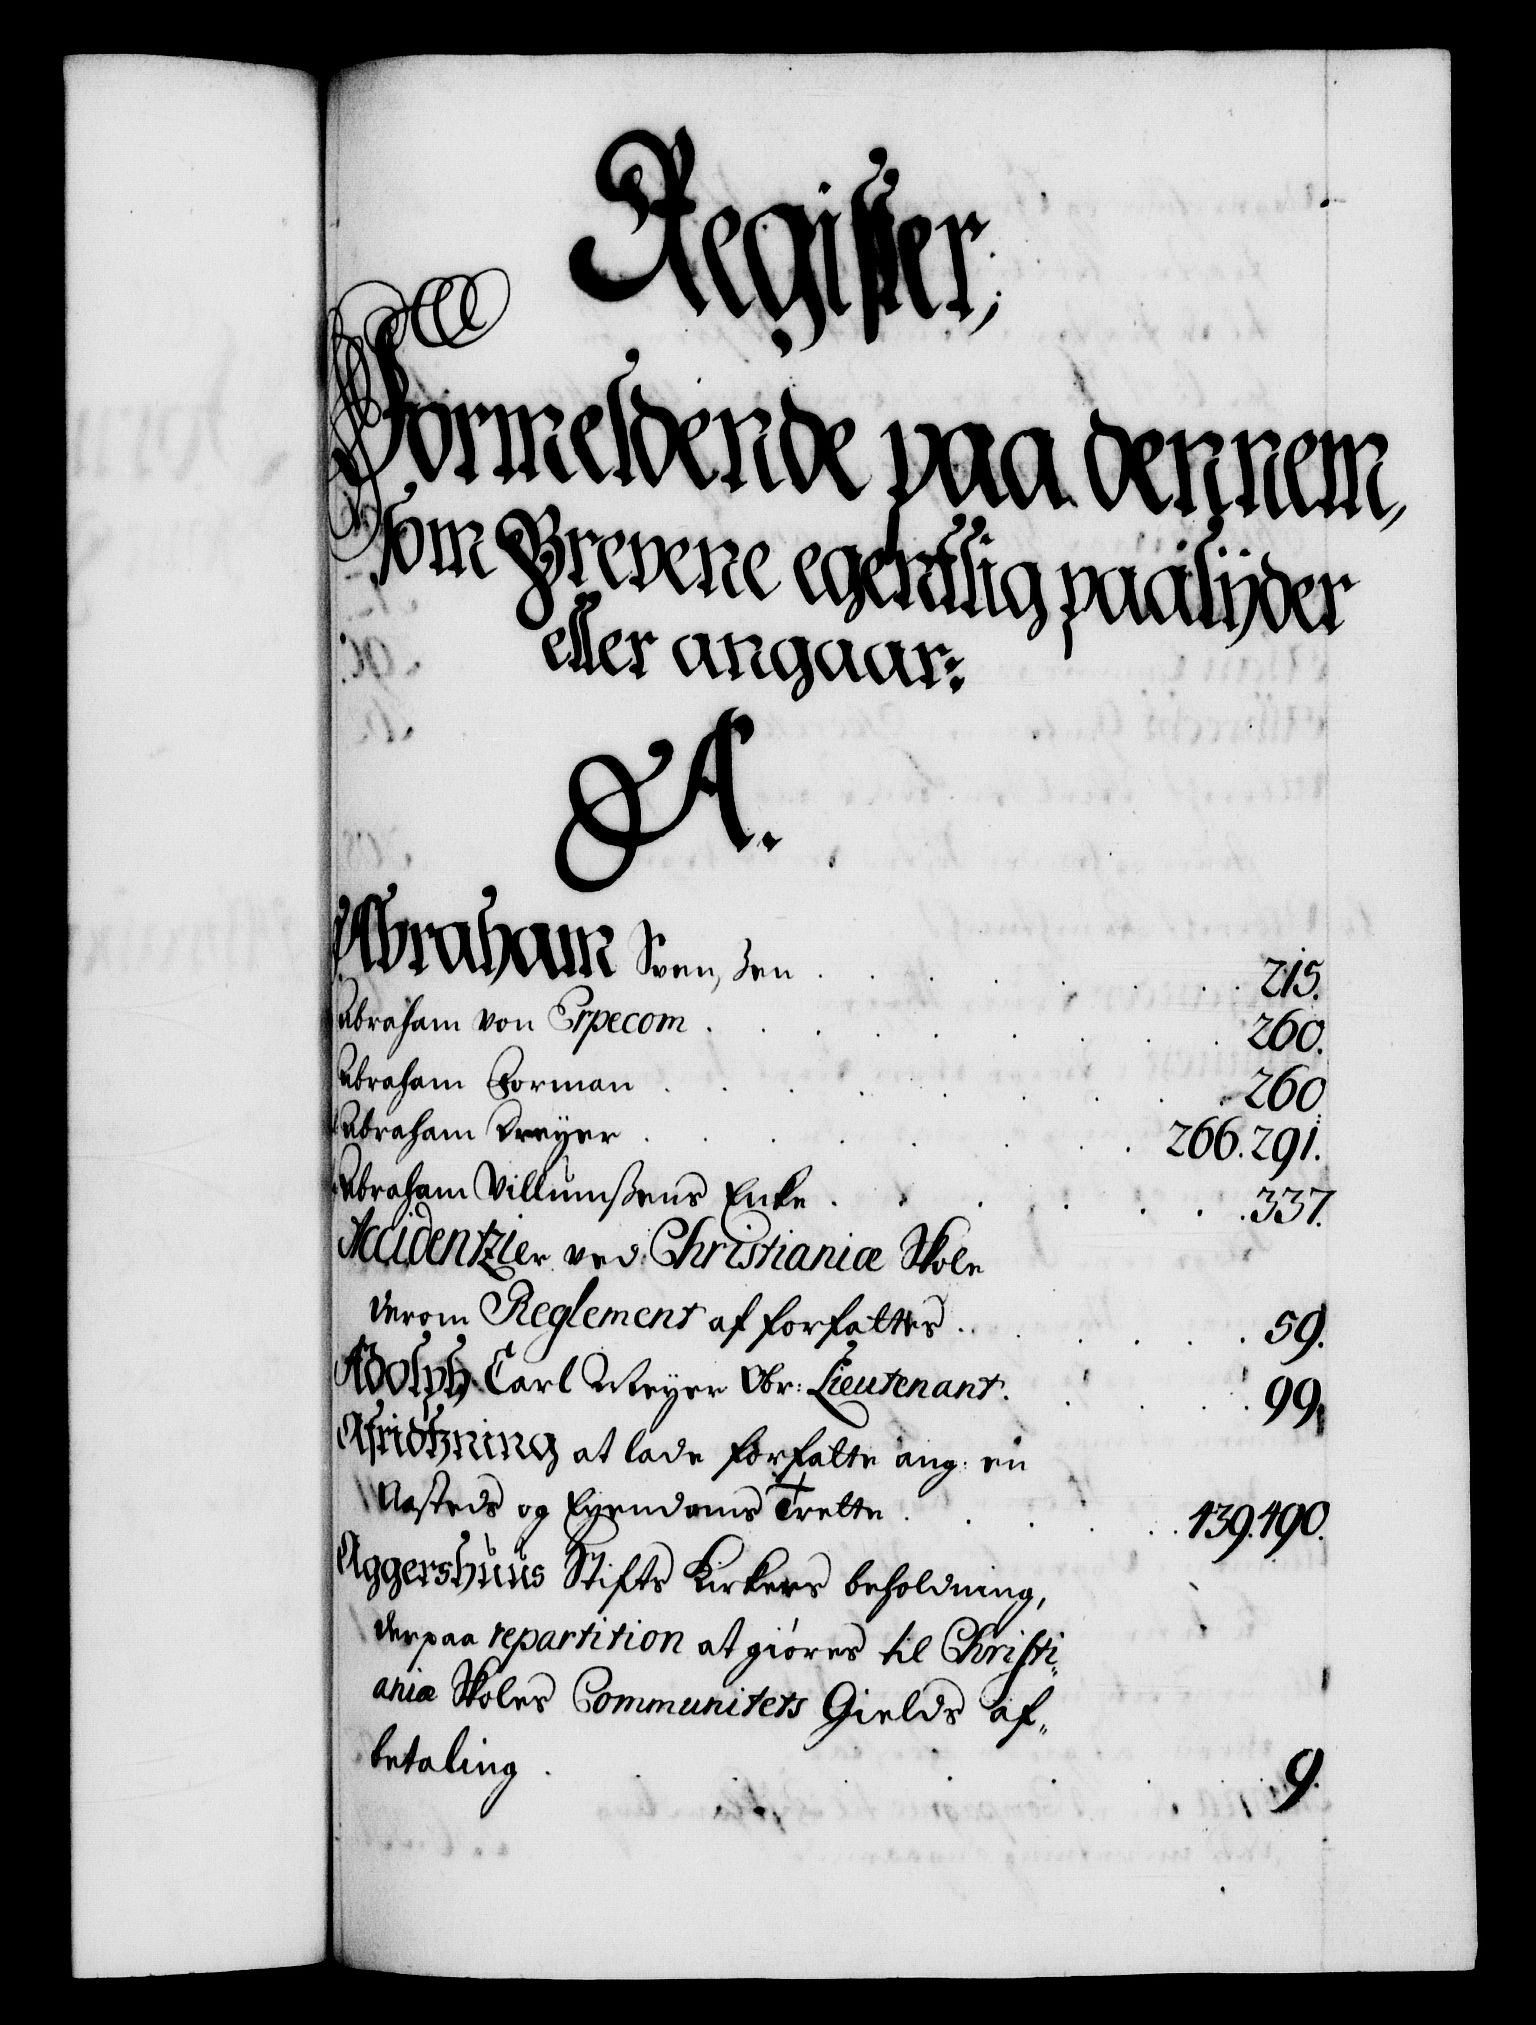 Register,
Formeldende paa dennem,
som Brevene egentlig paalÿder
eller angaar:
A.
Abraham Svendsen . . . . . . 215.
Abraham von Erpecom . . . . . . 260.
Abraham Forman . . . . . . 260.
Abraham Dreÿer . . . . . . 266. 291.
Abraham Villumsens Enke . . . . . . 337.
Accidentzier ved Christianiæ Skole
derom Reglement at forfattes . . . . . 59.
Adolph Carl Meyer Obr: Lieutenant . . . . 99.
Afridtzning at lade forfatte ang: en
Aasteds og Eyendoms Trette . . . . . 139. 190.
Aggershuus Stifts Kirkers beholdning,
derpaa repartition at giöres til Christi-
aniæ Skoles Communitets Gields af-
betaling . . . . . . 9.